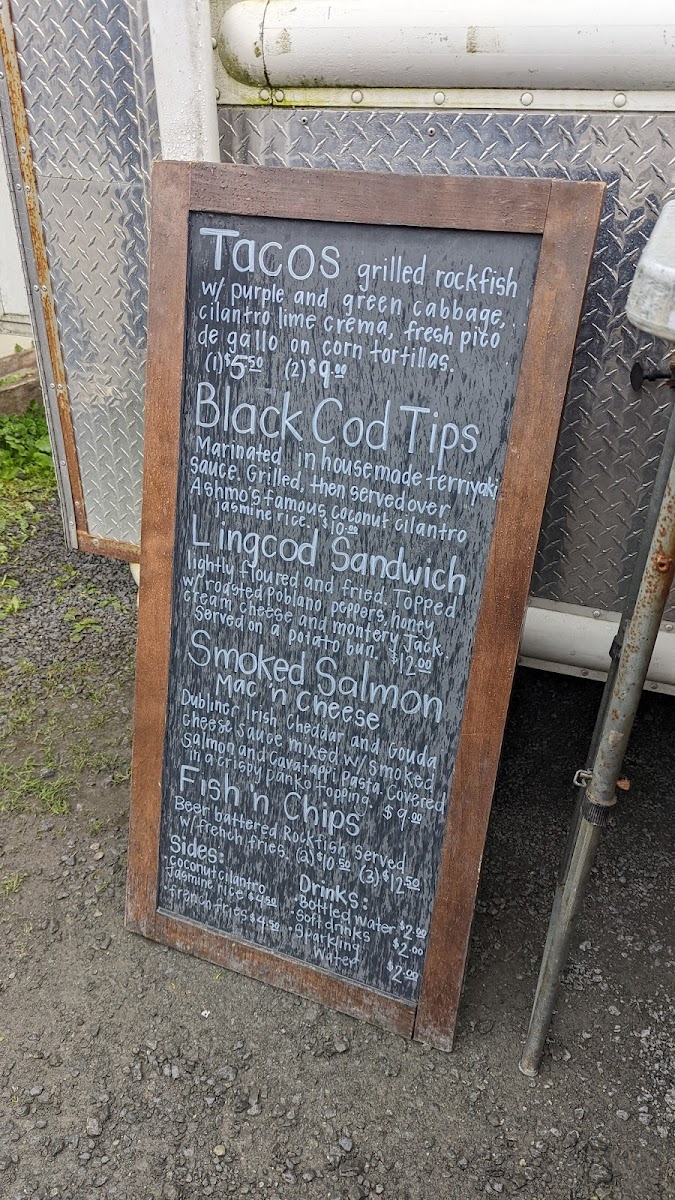 Tacos grilled rockfish
w/ purple and green cabbage,
cilantro lime crema, fresh pico
de gallo on corn tortillas.
(1) $5.50 (2) $9.00
Black Cod Tips
Marinated in housemade terriyaki
sauce. Grilled, then served over
Ashmo's famous coconut cilantro
jasmine rice. $10.00
Lingcod Sandwich
lightly floured and fried. Topped
w/ roasted Poblano peppers, honey
cream cheese and montery Jack.
Served on a potato bun. $12.00
Smoked Salmon
Mac 'n Cheese
Dubliner Irish Cheddar and Gouda
cheese sauce mixed w/ smoked
salmon and Cavatappi Pasta. Covered
in a crisby Panko topping. $9.00
Fish 'n Chips
Beer battered Rockfish served
w/ french fries. (2) $10.50 (3) $12.50
Sides:
• coconut cilantro
Jasmine rice $4.50
• french fries $4.50
Drinks:
• Bottled water $2.00
• Soft drinks $2.00
• Sparkling
Water $2.00